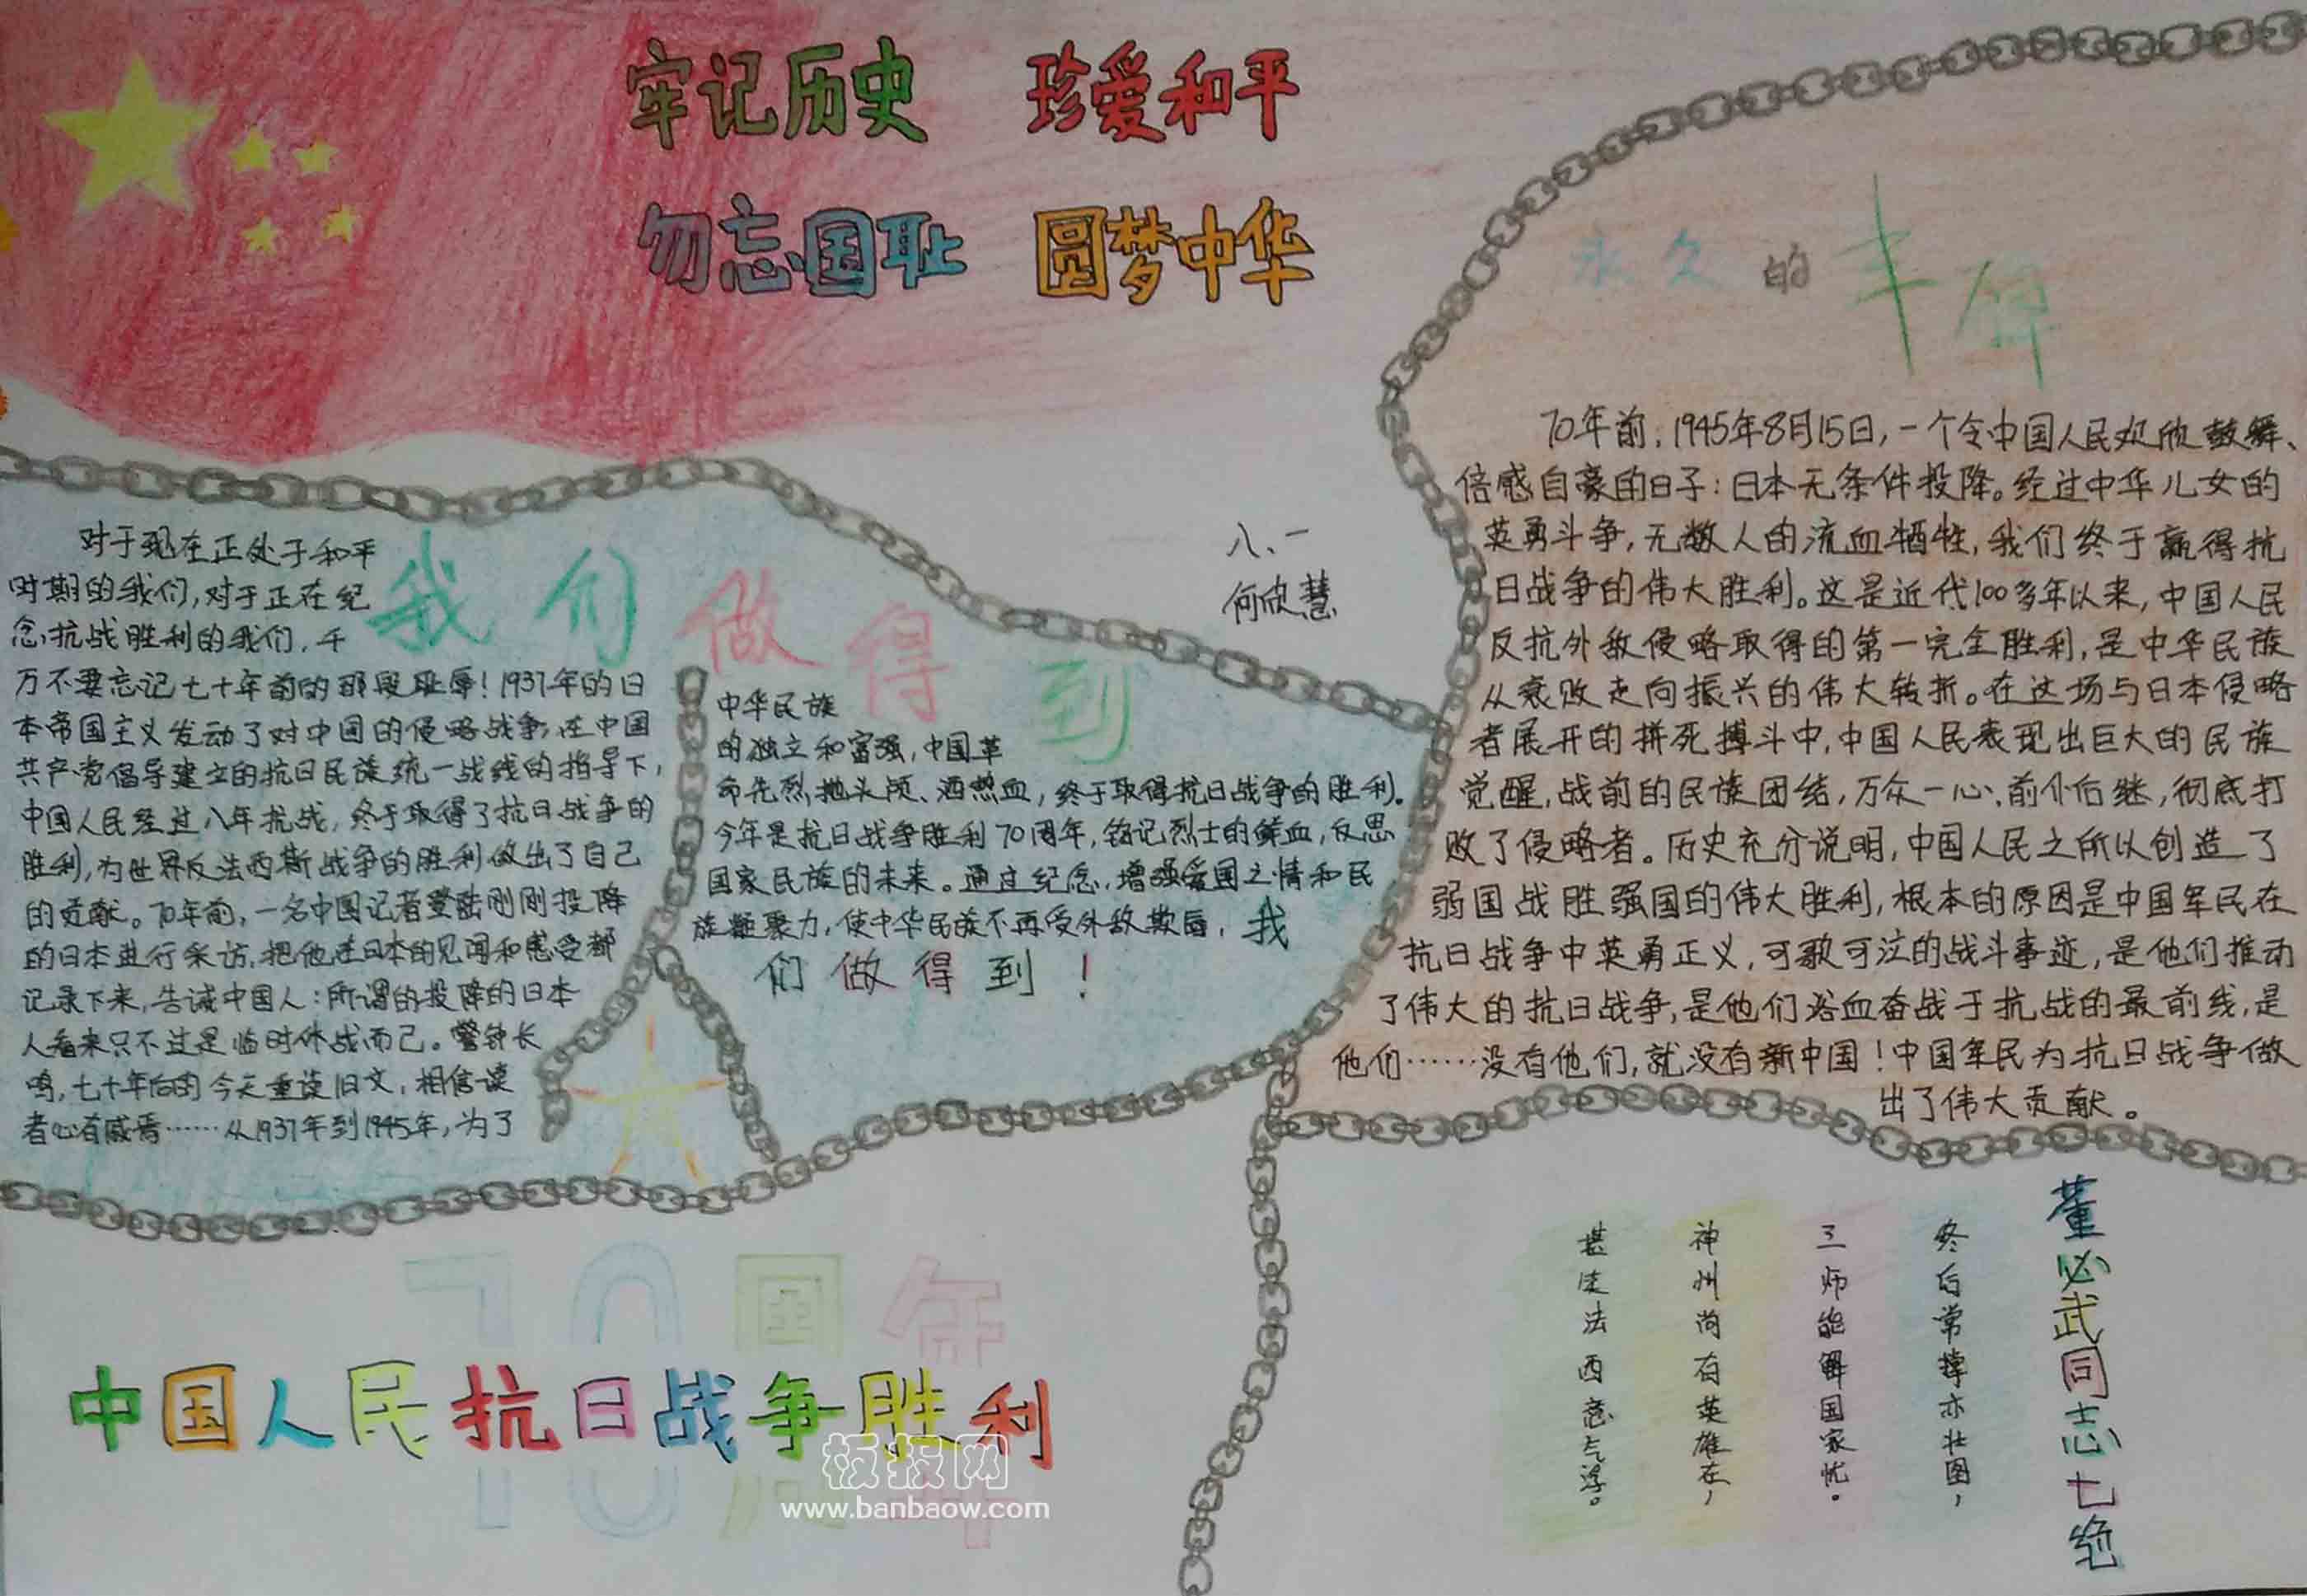 牢记历史 珍爱和平
勿忘国耻 圆梦中华
八、一
何欣慧
我们做得到
对于现在正处于和平
时期的我们,对于正在纪
念抗战胜利的我们,千
万不要忘记七十年前的那段耻辱!1937年的日
本帝国主义发动了对中国的侵略战争,在中国
共产党倡导建立的抗日民族统一战线的指导下,
中国人民经过八年抗战,终于取得了抗日战争的
胜利,为世界反法西斯战争的胜利做出了自己
的贡献。70年前,一名中国记者登陆刚刚投降
的日本进行采访,把他在日本的见闻和感受都
记录下来,告诫中国人:所谓的投降的日本
人看来只不过是临时休战而已。警钟长
鸣,七十年后的今天重读旧文,相信读
者心有戚焉……从1937年到1945年,为了
中华民族
的独立和富强,中国革
命先烈抛头颅、洒热血,终于取得抗日战争的胜利。
今年是抗日战争胜利70周年,铭记烈士的鲜血,反思
国家民族的未来。通过纪念,增强爱国之情和民
族凝聚力,使中华民族不再受外敌欺辱,我
们做得到!
永久的丰碑
70年前,1945年8月15日,一个令中国人民欢欣鼓舞、
倍感自豪的日子:日本无条件投降。经过中华儿女的
英勇斗争,无数人的流血牺牲,我们终于赢得抗
日战争的伟大胜利。这是近代100多年以来,中国人民
反抗外敌侵略取得的第一完全胜利,是中华民族
从衰败走向振兴的伟大转折。在这场与日本侵略
者展开的拼死搏斗中,中国人民表现出巨大的民族
觉醒,战前的民族团结,万众一心,前仆后继,彻底打
败了侵略者。历史充分说明,中国人民之所以创造了
弱国战胜强国的伟大胜利,根本的原因是中国军民在
抗日战争中英勇正义,可歌可泣的战斗事迹,是他们推动
了伟大的抗日战争,是他们浴血奋战于抗战的最前线,是
他们……没有他们,就没有新中国!中国军民为抗日战争做
出了伟大贡献。
董必武同志七绝
终后常撑亦壮图,
三师能解国家忧。
神州尚有英雄在,
甚法西意气浮。
70周年
中国人民抗日战争胜利
板报网
www.banbaow.com